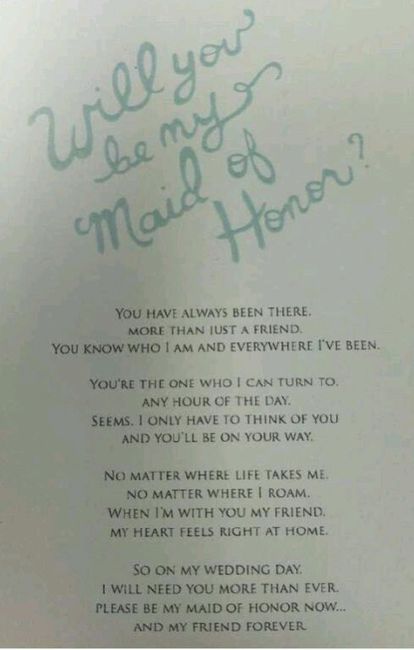 Will you
be my
Maid of
Honor?
YOU HAVE ALWAYS BEEN THERE,
MORE THAN JUST A FRIEND.
YOU KNOW WHO I AM AND EVERYWHERE I'VE BEEN.
YOU'RE THE ONE WHO I CAN TURN TO,
ANY HOUR OF THE DAY.
SEEMS, I ONLY HAVE TO THINK OF YOU
AND YOU'LL BE ON YOUR WAY.
NO MATTER WHERE LIFE TAKES ME,
NO MATTER WHERE I ROAM,
WHEN I'M WITH YOU MY FRIEND,
MY HEART FEELS RIGHT AT HOME.
SO ON MY WEDDING DAY,
I WILL NEED YOU MORE THAN EVER.
PLEASE BE MY MAID OF HONOR NOW...
AND MY FRIEND FOREVER.